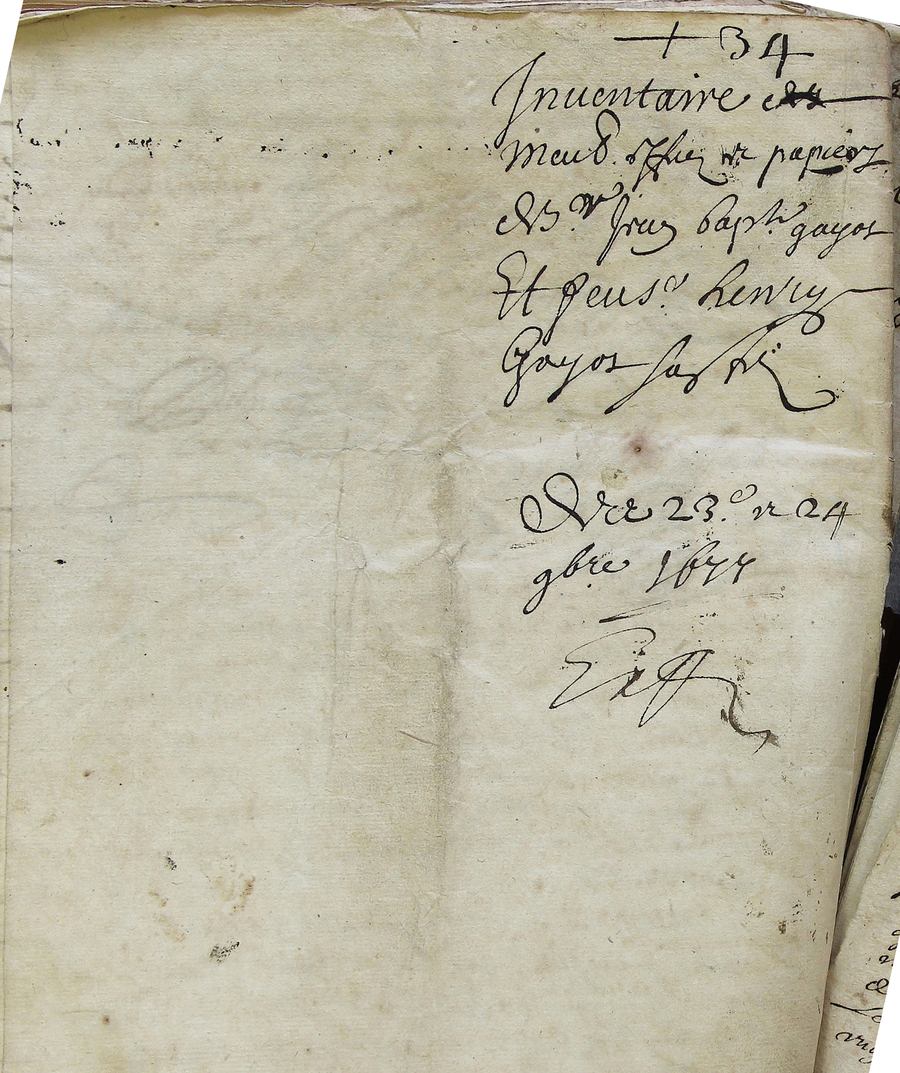 + 34
Inuentaire des
meub. effuez et papiers
de Mr Jean bapte gayot
Et feu sr henry
Gayot son filz
Des 23.e et 24
9bre 1677